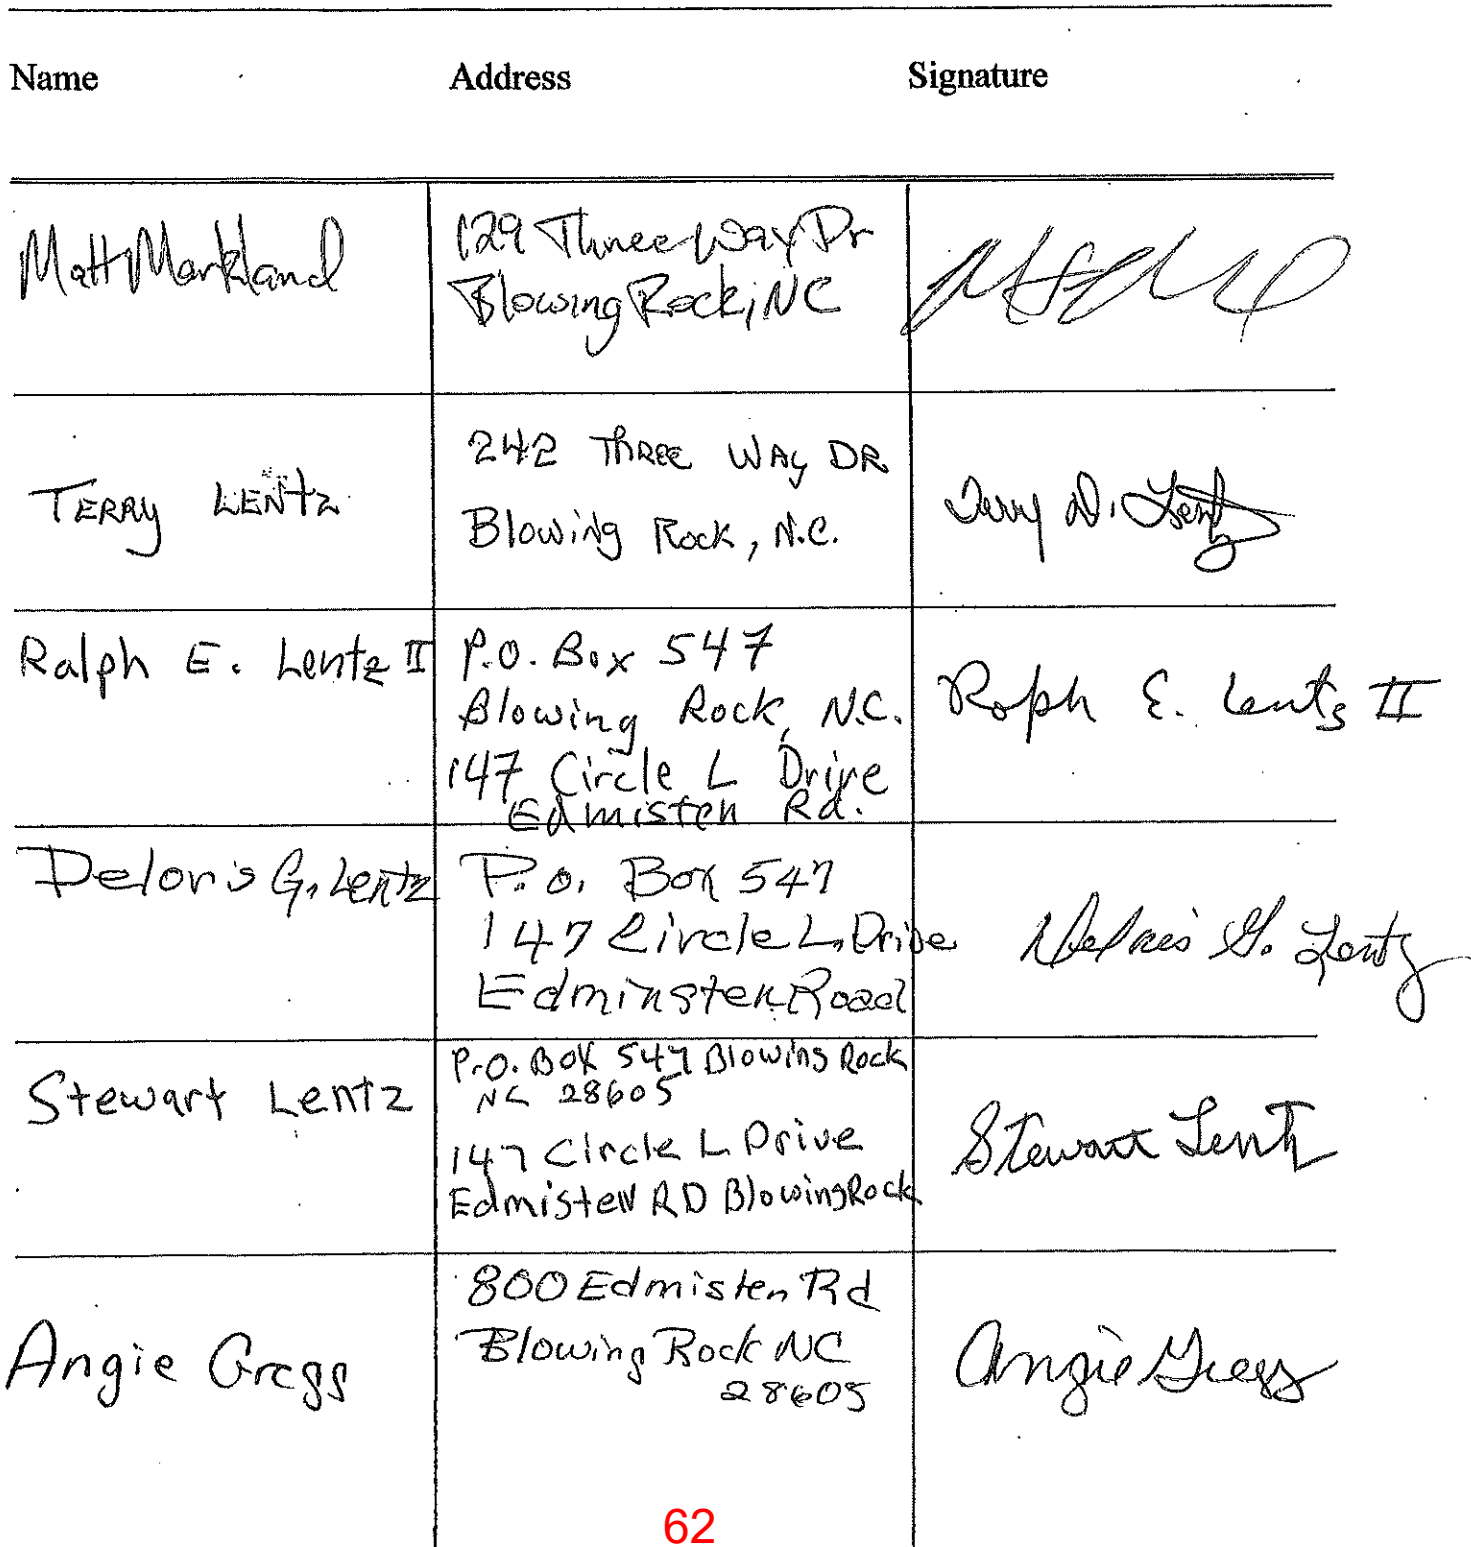 Name Address Signature
Matt Markland
129 Three Way Dr
Blowing Rock, NC
TERRY LENTZ
242 THREE WAY DR
Blowing Rock, N.C.
Terry D. Lentz
Ralph E. Lentz II
P.O. Box 547
Blowing Rock, N.C.
147 Circle L Drive
Edmisten Rd.
Ralph E. Lentz II
Deloris G. Lentz
P.O. Box 547
147 Circle L Drive
Edminsten Road
Deloris G. Lentz
Stewart Lentz
P.O. BOX 547 Blowing Rock
NC 28605
147 Circle L Drive
Edmisten RD Blowing Rock
Stewart Lentz
Angie Gregg
800 Edmisten Rd
Blowing Rock NC
28605
Angie Gregg
62